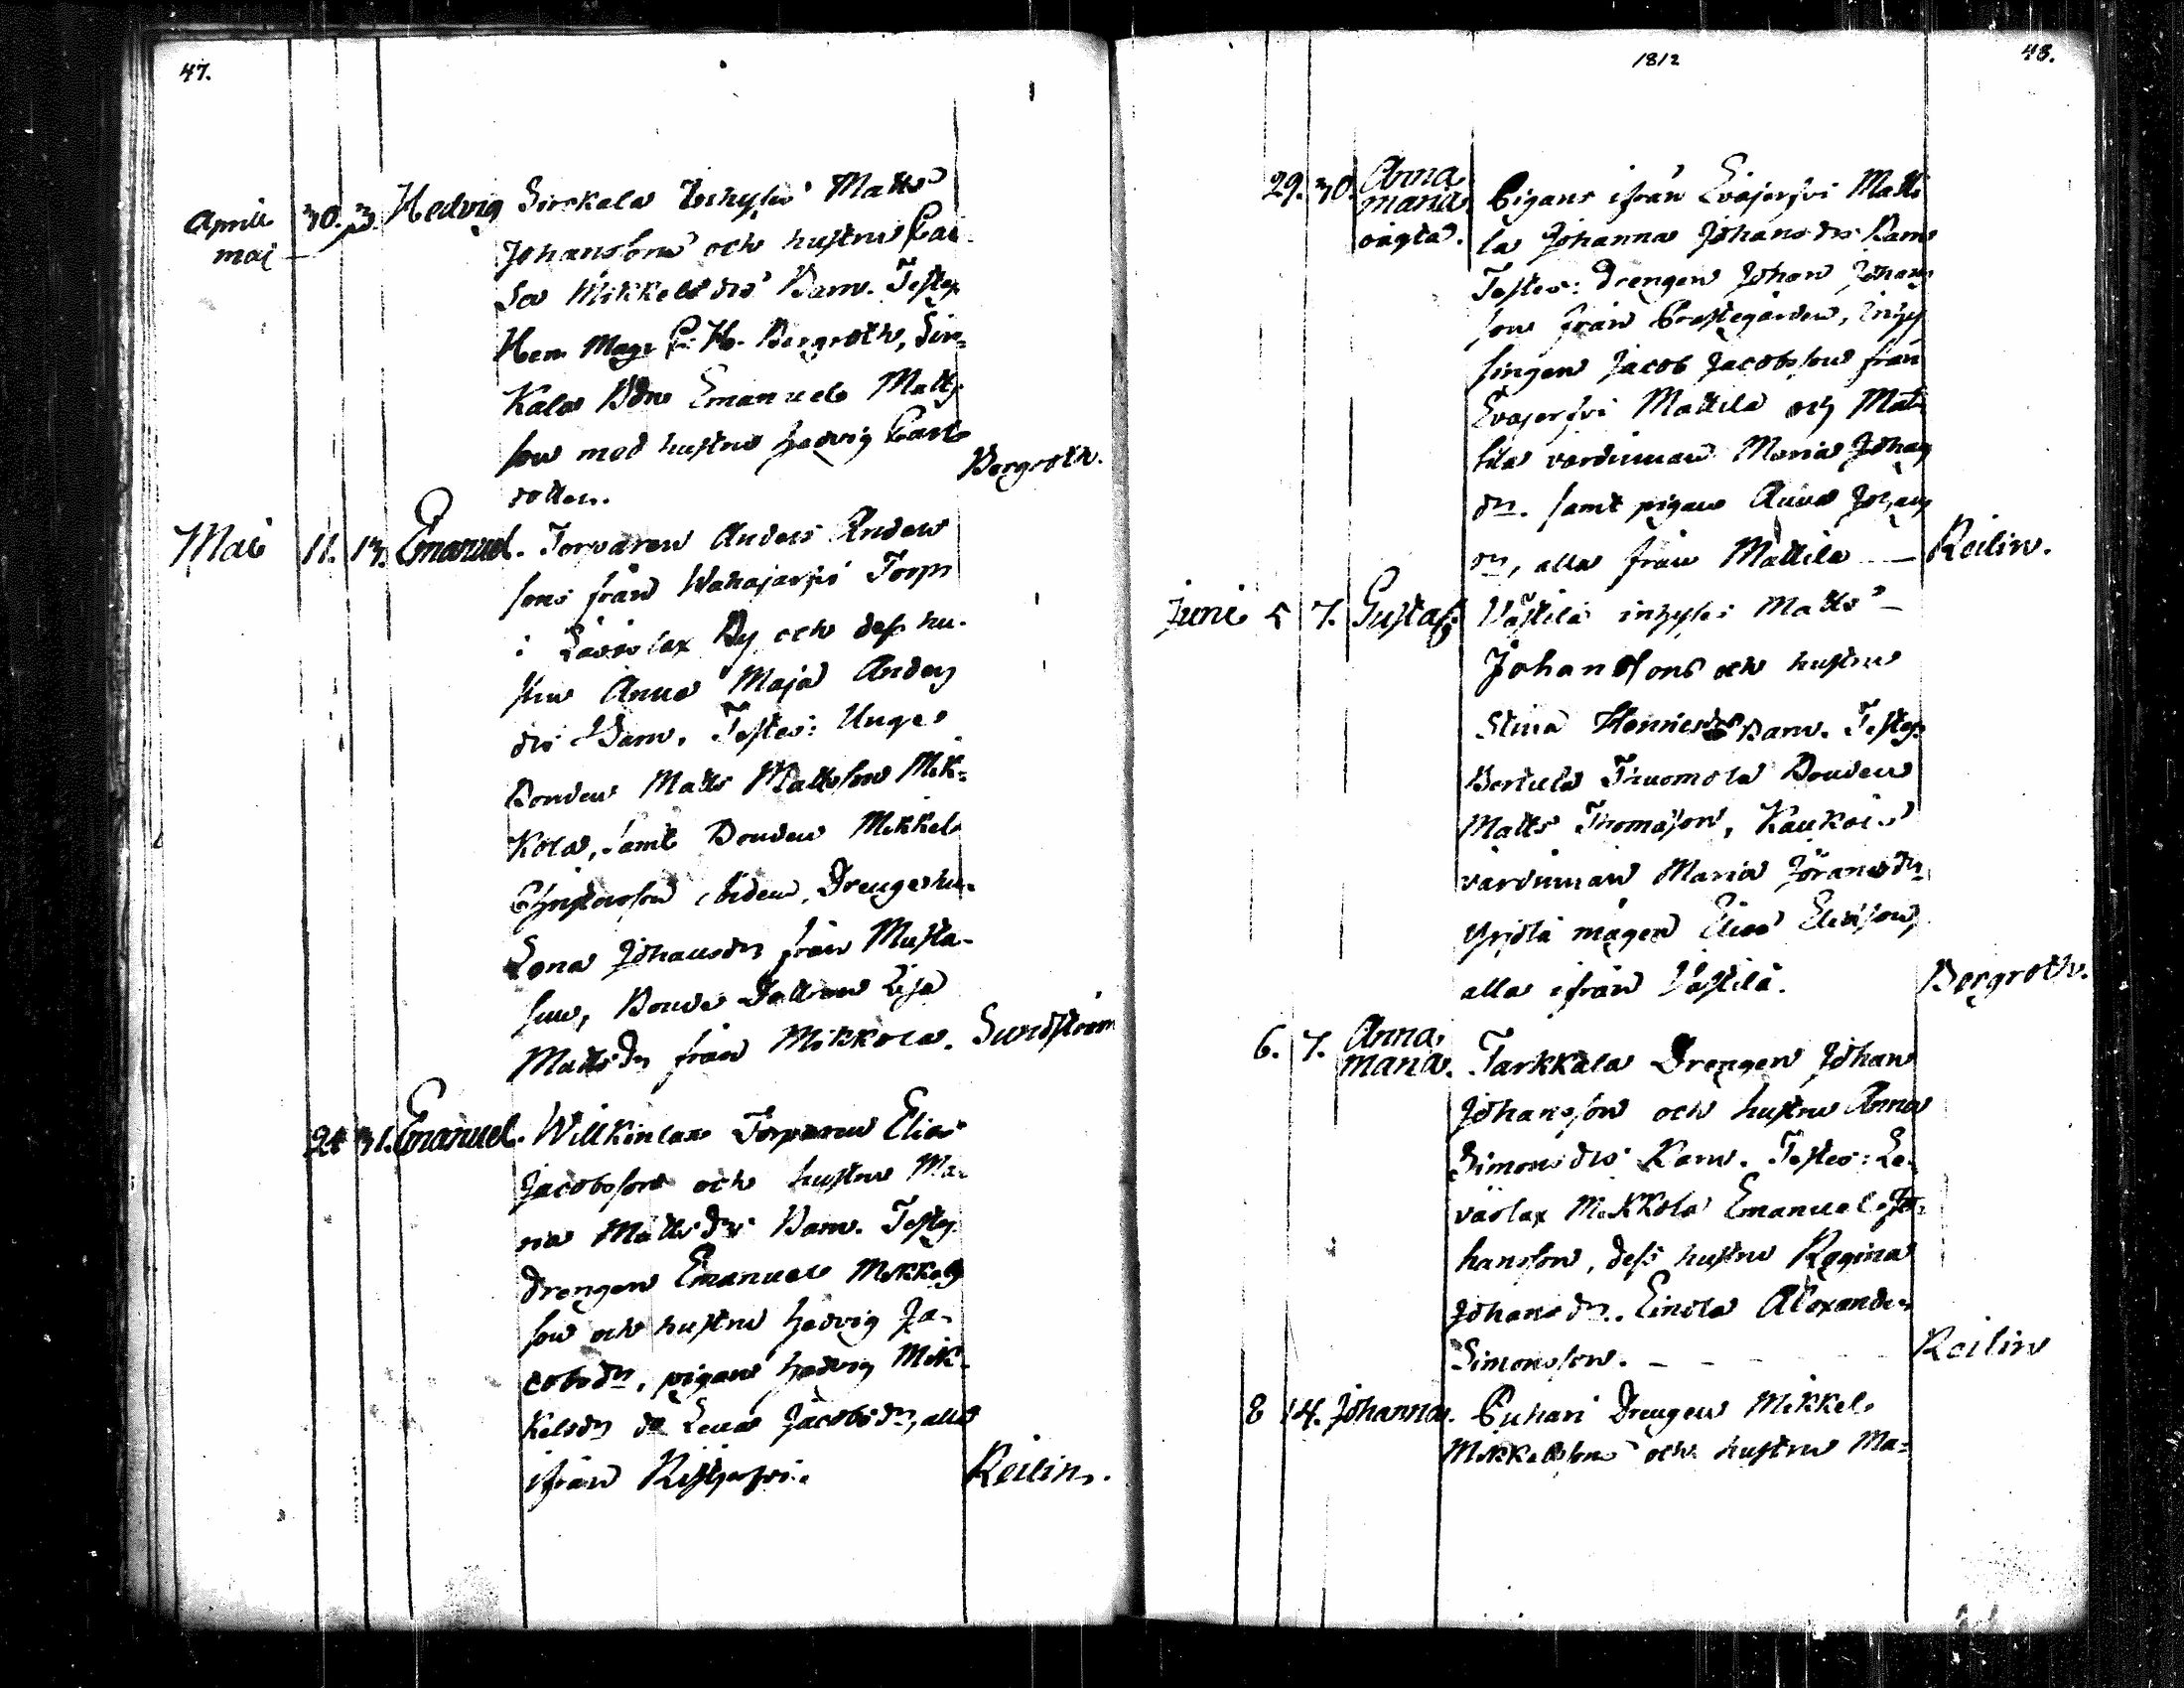 47.
April 30. 3. Hedvig Sirckala Inhyses Matts
maj
Johanssons och hustru Cai
sa Mikkels drs Barn. Testes
Herr Mag: C. H. Bergroth, Sir=
kala Bdn Emanuel Matts
son med hustru Hedvig Carls
dotter. Bergroth.
Mai 11. 13. Emanuel. Torparen Anders Anders
sons från Wahajarfvi Torp
i Lävislax By och dess hu-
stru Anna Maja Anders
drs Barn. Testes: Unge
Bonden Matts Mattsson Mik=
kola, samt Bonden Mikkel
Christersson ibidem, Drengehu.
Lena Johansdr från Musta-
suo, Bonde Dottren Lisa
Matts dr från Mikkola. Sundström
24 31. Emanuel. Willkinlax Torparen Elias
Jacobssons och hustru Ma-
ria Matts drs Barn. Testes
Drengen Emanuel Mikkels
son och hustru Hedvig Ja-
cobsdr, pigan Hedvig Mik-
kelsdr do Lena Jacobsdr, alla
ifrån Ristjerfvi. Reilin.
1812 48.
29. 30. Anna
maria
oägta. Pigans ifrån Evajerfvi Matti
la Johanna Johans drs Barn
Testes: Drengen Johan Johans
son från Prestegården, Inhys
singen Jacob Jacobsson från
Evajerfvi Mattila och Mat-
tila värdinnan Maria Johans
dr. samt pigan Anna Johans
dr, alla från Mattila — Reilin.
Juni 5 7. Gustaf. Västilä inhyses Matts
Johanssons och hustru
Stina Henricsdrs Barn. Testes
Bertula Thuomola Bonden
Matts Thomasson, Kaukois
värdinnan Maria Jöransdr,
Yrjölä mågen Elias Eliasson,
alla ifrån Västilä. Bergroth.
6. 7. Anna
maria. Tarkkala Drengen Johan
Johansson och hustru Anna
Simons drs Barn. Testes: Le-
väslax Mikkola Emanuel Jo-
hansson, dess hustru Regina
Johansdr. Einola Alexander
Simonsson. - - - - Reilin
8 14. Johanna. Puhari Drengen Mikkel
Mikkelssons och hustru Ma=